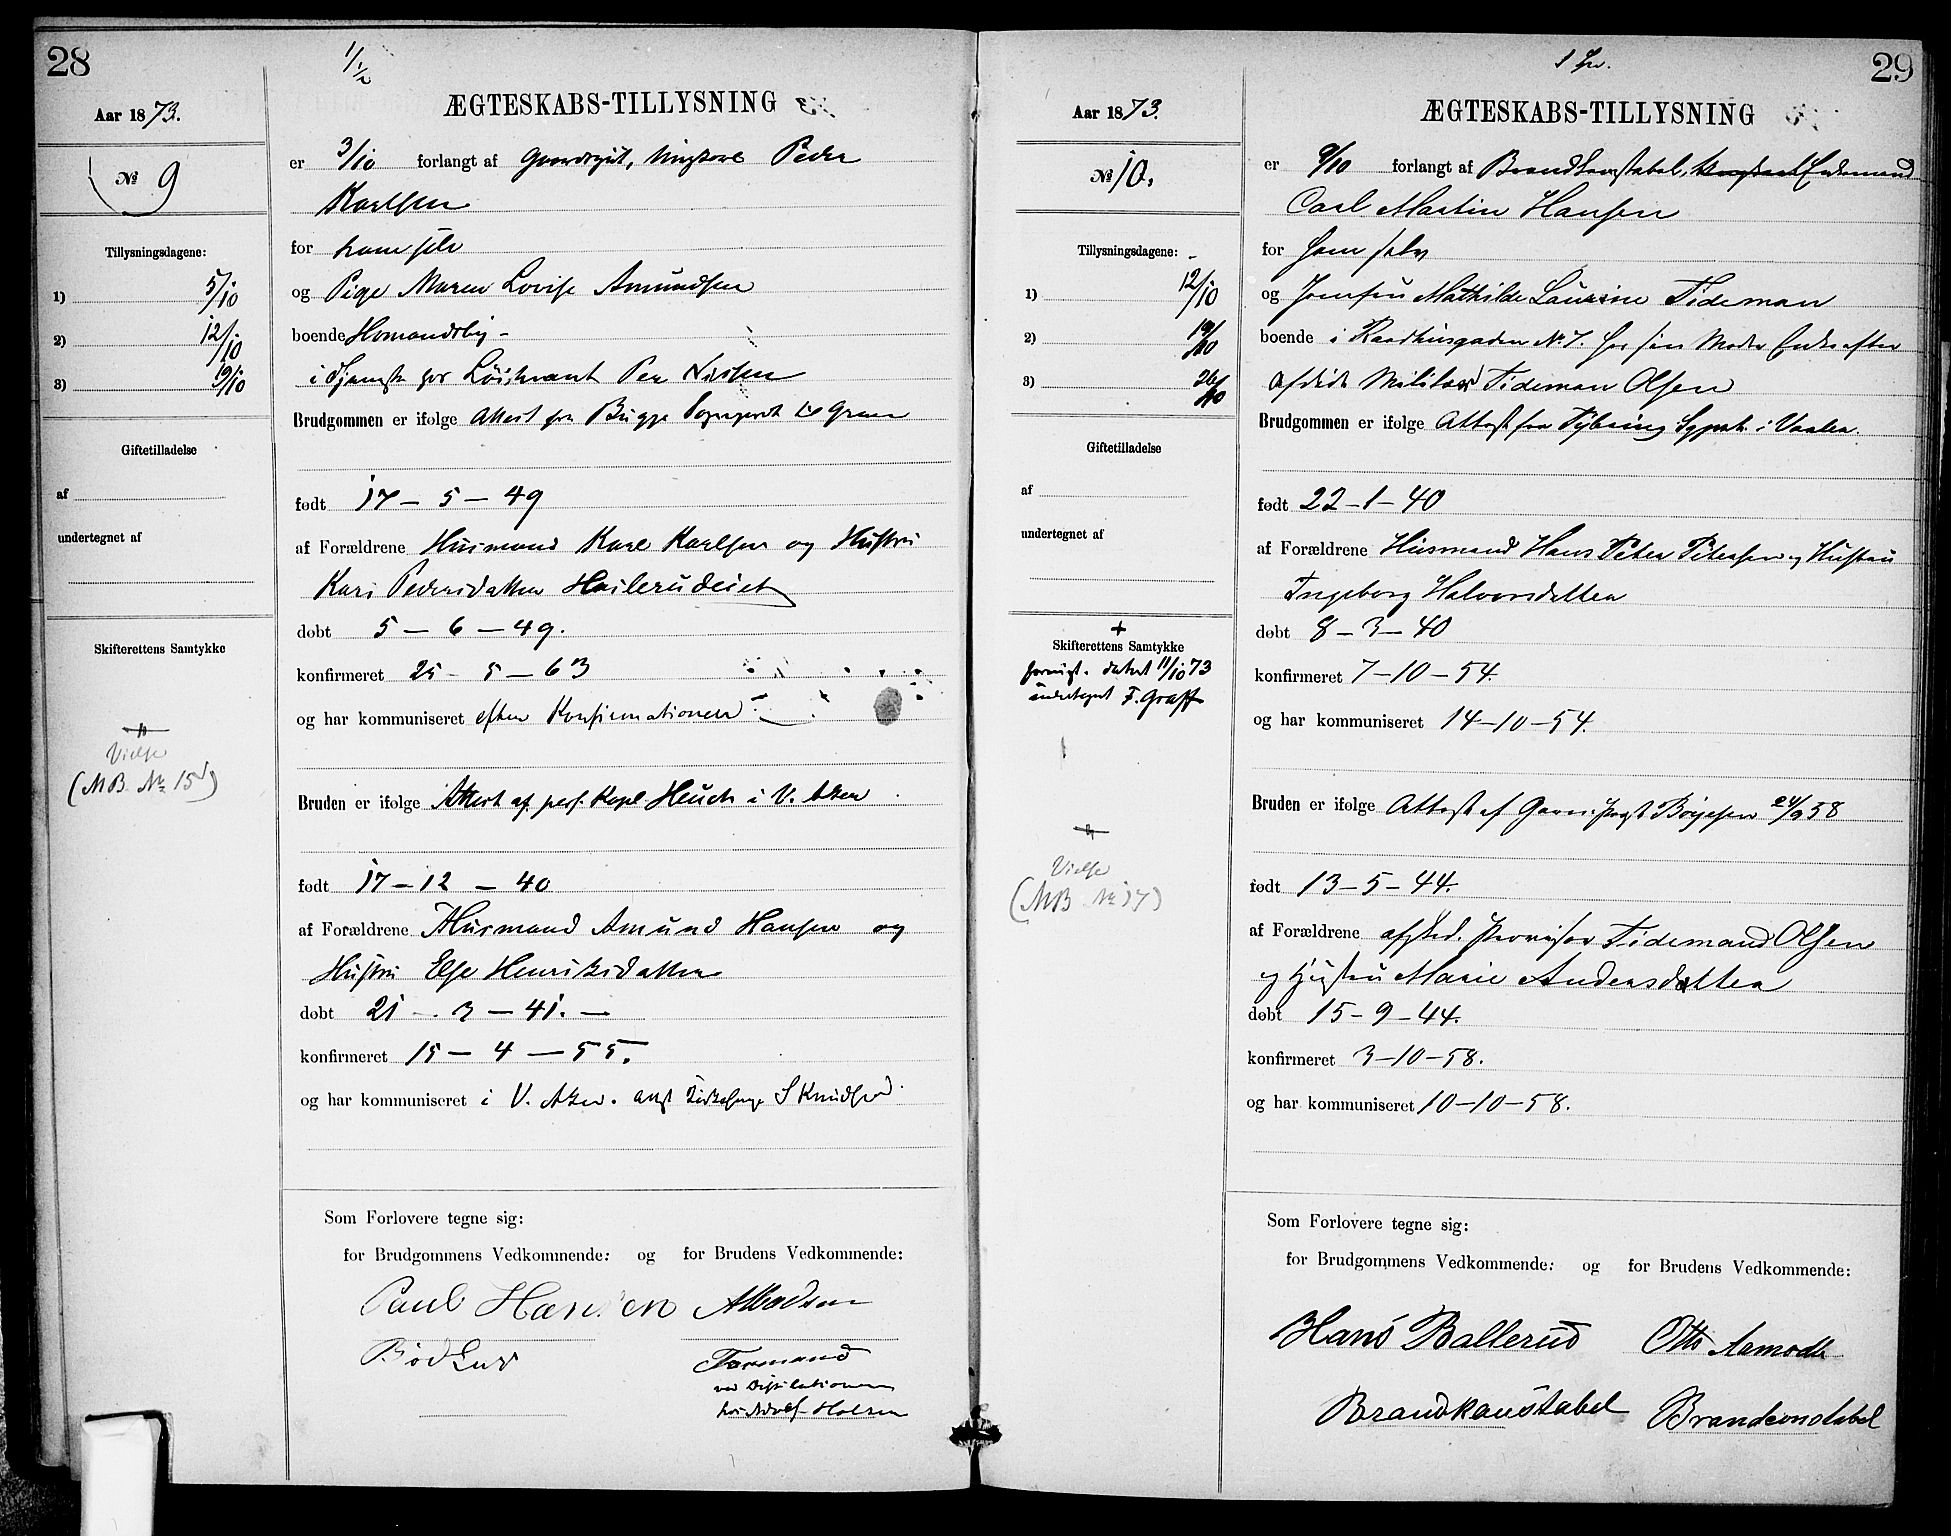 28
1/1/2
Aar 1873.
ÆGTESKABS-TILLYSNING
№ 9
er 3/10 forlangt af Gaardsgut, Ungkarl Peder
Karlsen
Tillysningsdagene:
for ham selv
1) 5/10
og Pige Maren Lovise Amundsen
2) 12/10
boende Homandsby -
3) 19/10
i Tjeneste hos Løitnant Per Nissen
Brudgommen er ifølge Attest fra Bugge Sogneprest til Gran
Giftetilladelse
af
født 17 - 5 - 49
undertegnet af
af Forældrene Husmand Karl Karlsen og Hustru
Kari Pedersdatter Heilerudeiet
døbt 5 - 6 - 49.
Skifterettens Samtykke
konfirmeret 25 - 5 - 63
og har kommuniseret efter Konfirmationen
Vielse
(MB. № 15)
Bruden er ifølge Attest af pers. Kapl Heuch i V. Aker
født 17 - 12 - 40
af Forældrene Husmand Amund Hansen og
Hustru Else Henriksdatter
døbt 21 - 3 - 41. -
konfirmeret 15 - 4 - 55.
og har kommuniseret i V. Aker. S Knudsen
Som Forlovere tegne sig:
for Brudgommens Vedkommende: og for Brudens Vedkommende:
Paul Hansen AMadsen
Bødker Formand
ved Distilationen
hos Adolf Holsen
29
Aar 1873.
ÆGTESKABS-TILLYSNING
№ 10.
er 9/10 forlangt af Brandkonstabel, Ungkarl Enkemand
Carl Martin Hansen
Tillysningsdagene:
for ham selv
1) 12/10
og Jomfru Mathilde Laurine Tideman
2) 19/10
boende i Raadhusgaden № 7. hos sin Moder Enke efter
3) 26/10
afdøde Militær Tideman Olsen
Brudgommen er ifølge Attest fra Tybring Sgprst. i Vaaler.
Giftetilladelse
af
født 22 - 1 - 40
undertegnet af
af Forældrene Husmand Hans Peter Petersen og Hustru
Ingeborg Halvorsdatter
+
døbt 8 - 3 - 40
Skifterettens Samtykke
konfirmeret 7 - 10 - 54.
forevist. datert 11/10 73
undertegnet F. Graff
og har kommuniseret 14 - 10 - 54.
Vielse
(MB № 17)
Bruden er ifølge Attest af Garni.prst Bøyesen 24/9 58
født 13 - 5 - 44.
af Forældrene afsked. Tidemand Olsen
og Hustru Marie Andersdatter
døbt 15 - 9 - 44.
konfirmeret 3 - 10 - 58.
og har kommuniseret 10 - 10 - 58.
Som Forlovere tegne sig:
for Brudgommens Vedkommende: og for Brudens Vedkommende:
Hans Ballerud Otto Aamodt
Brandkonstabel Brandconstabel